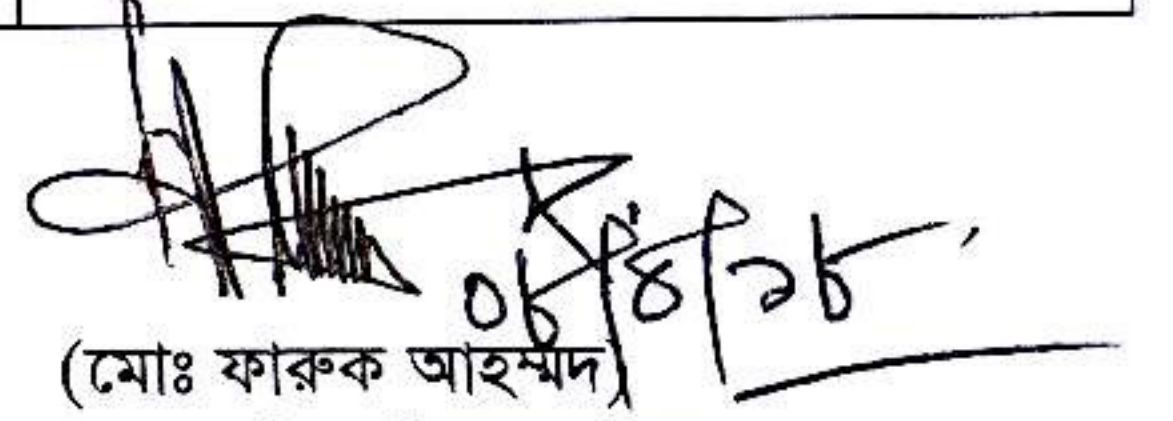 ০৮/৪/১৮
(মোঃ ফারুক আহম্মদ)